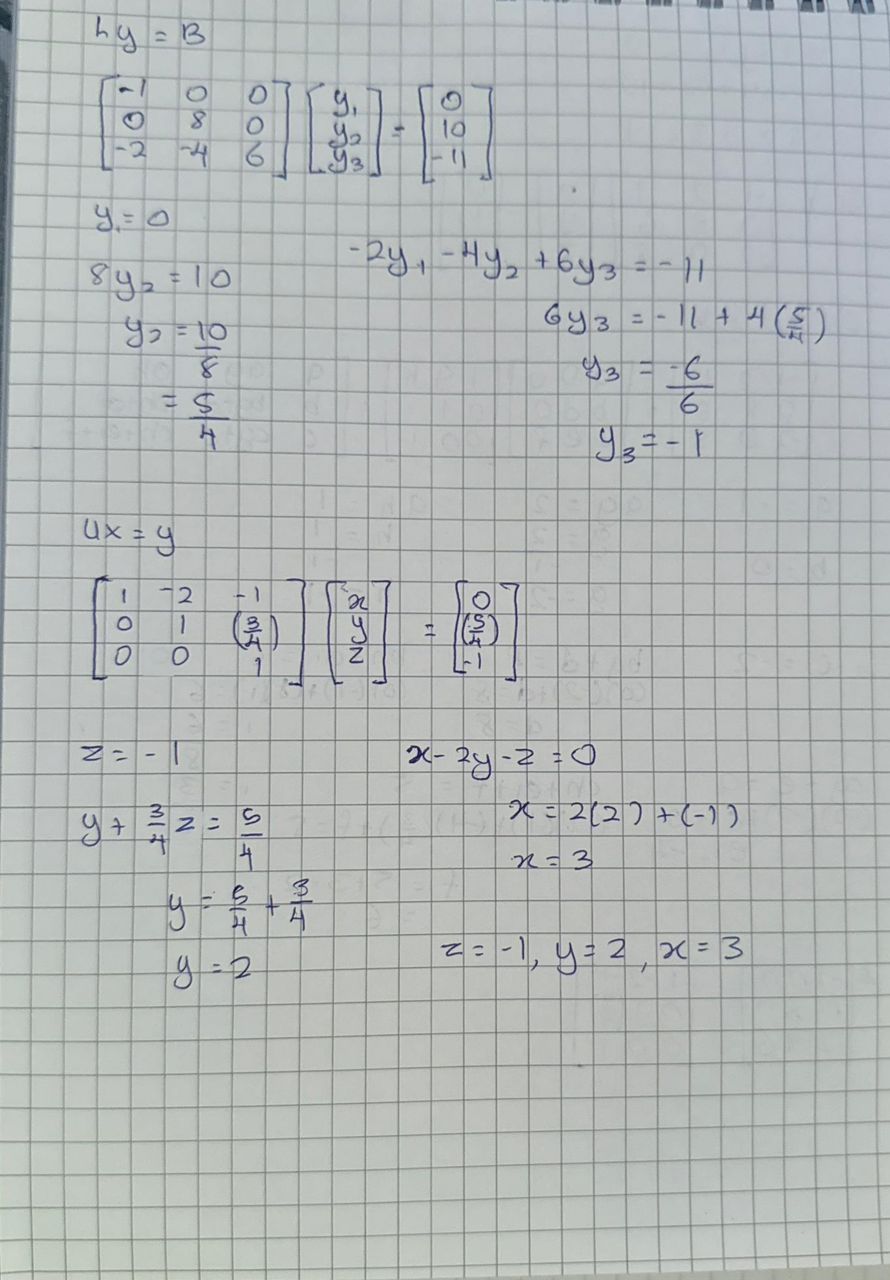 Ly = B
[-1 0 0] [y₁] = [0]
[0 8 0] [y₂] [10]
[-2 -4 6] [y₃] [-11]
y₁ = 0
8y₂ = 10
y₂ = 10/8
= 5/4
-2y₁ - 4y₂ + 6y₃ = -11
6y₃ = -11 + 4(5/4)
y₃ = -6/6
y₃ = -1
Ux = y
[1 -2 -1] [x] = [0]
[0 1 (3/4)] [y] [(5/4)]
[0 0 1] [z] [-1]
z = -1
y + 3/4 z = 5/4
y = 5/4 + 3/4
y = 2
x - 2y - z = 0
x = 2(2) + (-1)
x = 3
z = -1, y = 2, x = 3